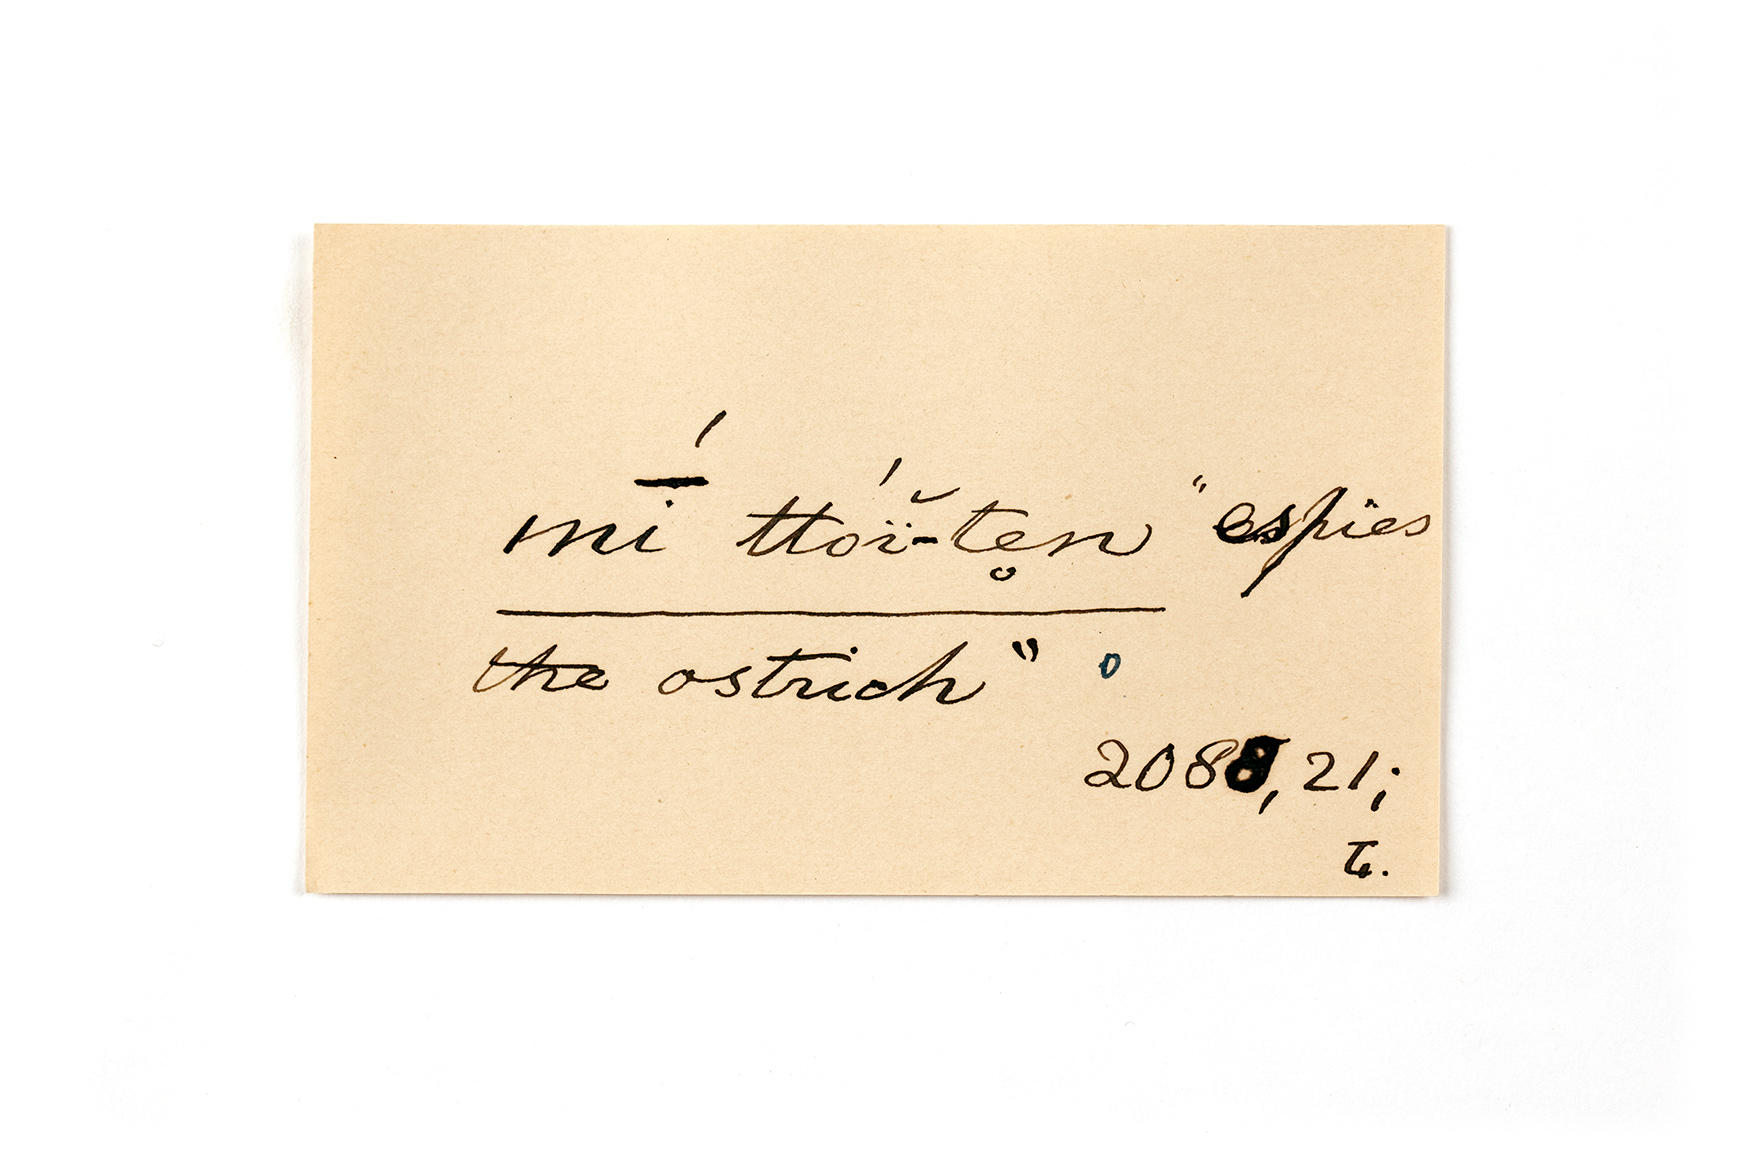 mī́ ttóï̆-tẹn "espies
the ostrich" o
2088, 21;